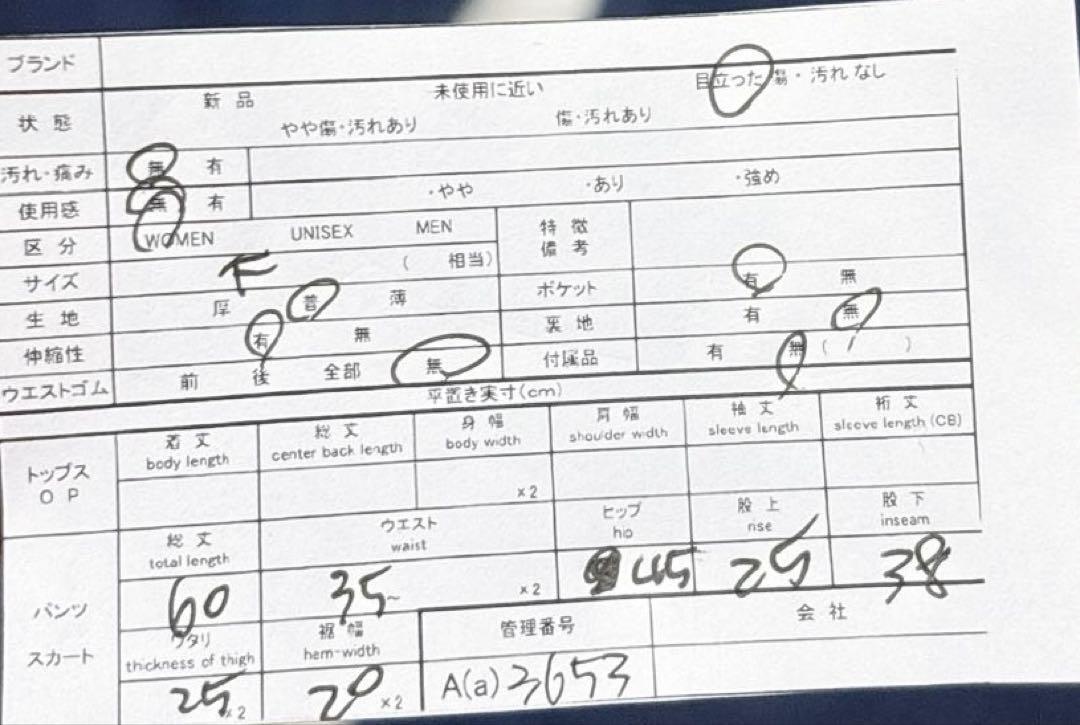 ブランド
状態 新品 未使用に近い 目立った傷・汚れなし
やや傷・汚れあり 傷・汚れあり
汚れ・痛み 無 有
使用感 無 有 ・やや ・あり ・強め
区分 WOMEN UNISEX MEN 特徴 備考
サイズ F ( 相当)
生地 厚 普 薄 ポケット 有 無
伸縮性 有 無 裏地 有 無
ウエストゴム 前 後 全部 無 付属品 有 無 ( )
平置き実寸(cm)
トップス OP 着丈 body length 総丈 center back length 身幅 body width 肩幅 shoulder width 袖丈 sleeve length 裄丈 sleeve length (CB)
×2
パンツ スカート 総丈 total length ウエスト waist ヒップ hip 股上 rise 股下 inseam
60 35 ×2 45 25 38
ワタリ thickness of thigh 裾幅 hem-width 管理番号 会社
25 ×2 20 ×2 A(a) 3653